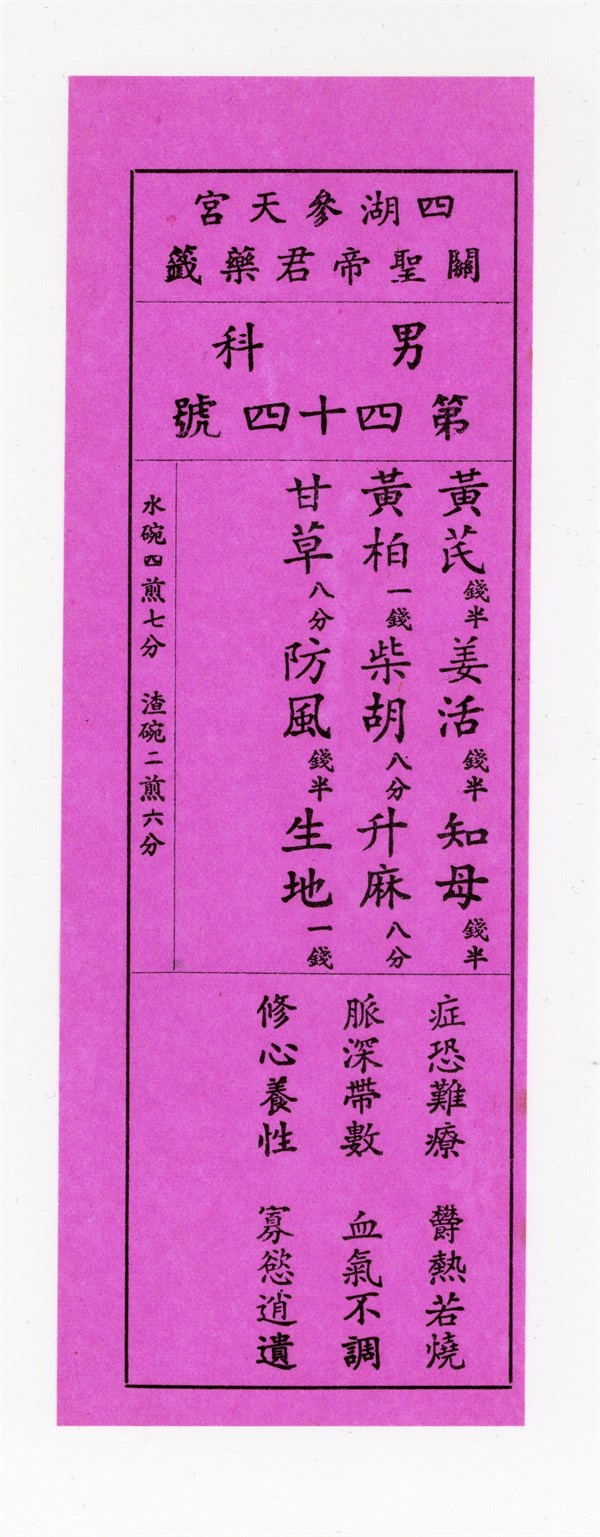 四湖參天宮
關聖帝君藥籤
男科
第四十四號
黃芪錢半姜活錢半知母錢半
黃柏一錢柴胡八分升麻八分
甘草八分防風錢半生地一錢
水碗四煎七分 渣碗二煎六分
症恐難療 欝熱若燒
脈深帶數 血氣不調
修心養性 寡慾逍遺